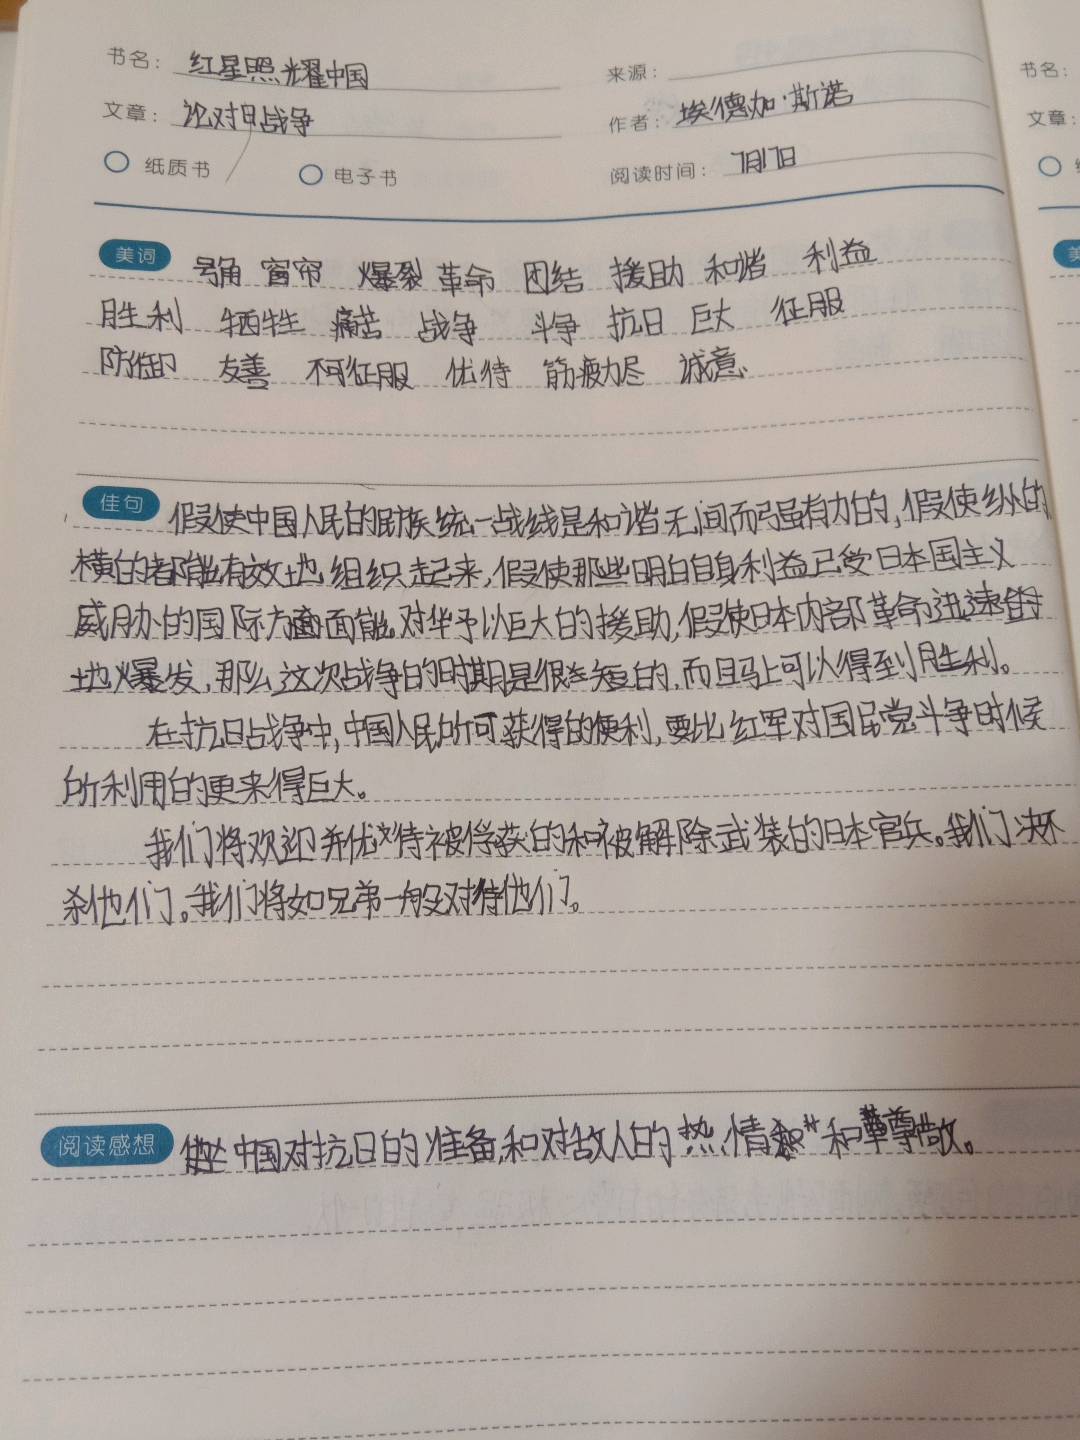 书名：红星照耀中国
来源：
文章：论对日战争
作者：埃德加·斯诺
纸质书 电子书
阅读时间：7月17日
美词 号角 窗帘 爆裂 革命 团结 援助 和谐 利益
胜利 牺牲 痛苦 战争 斗争 抗日 巨大 征服
防御 友善 不可征服 优待 筋疲力尽 诚意
佳句 假使中国人民的民族统一战线是和谐无间而强有力的，假使纵的
横的都能有效地组织起来，假使那些明白自身利益已受日本国主义
威胁的国际方面能对华予以巨大的援助，假使日本内部革命迅速
地爆发，那么这次战争的时期是很短的，而且马上可以得到胜利。
在抗日战争中，中国人民所可获得的便利，要比红军对国民党斗争时候
所利用的更来得巨大。
我们将欢迎并优待被俘获的和被解除武装的日本官兵。我们决不
杀他们。我们将如兄弟一般对待他们。
阅读感想 中国对抗日的准备，和对敌人的热情 和尊敬。
书名：
文章：